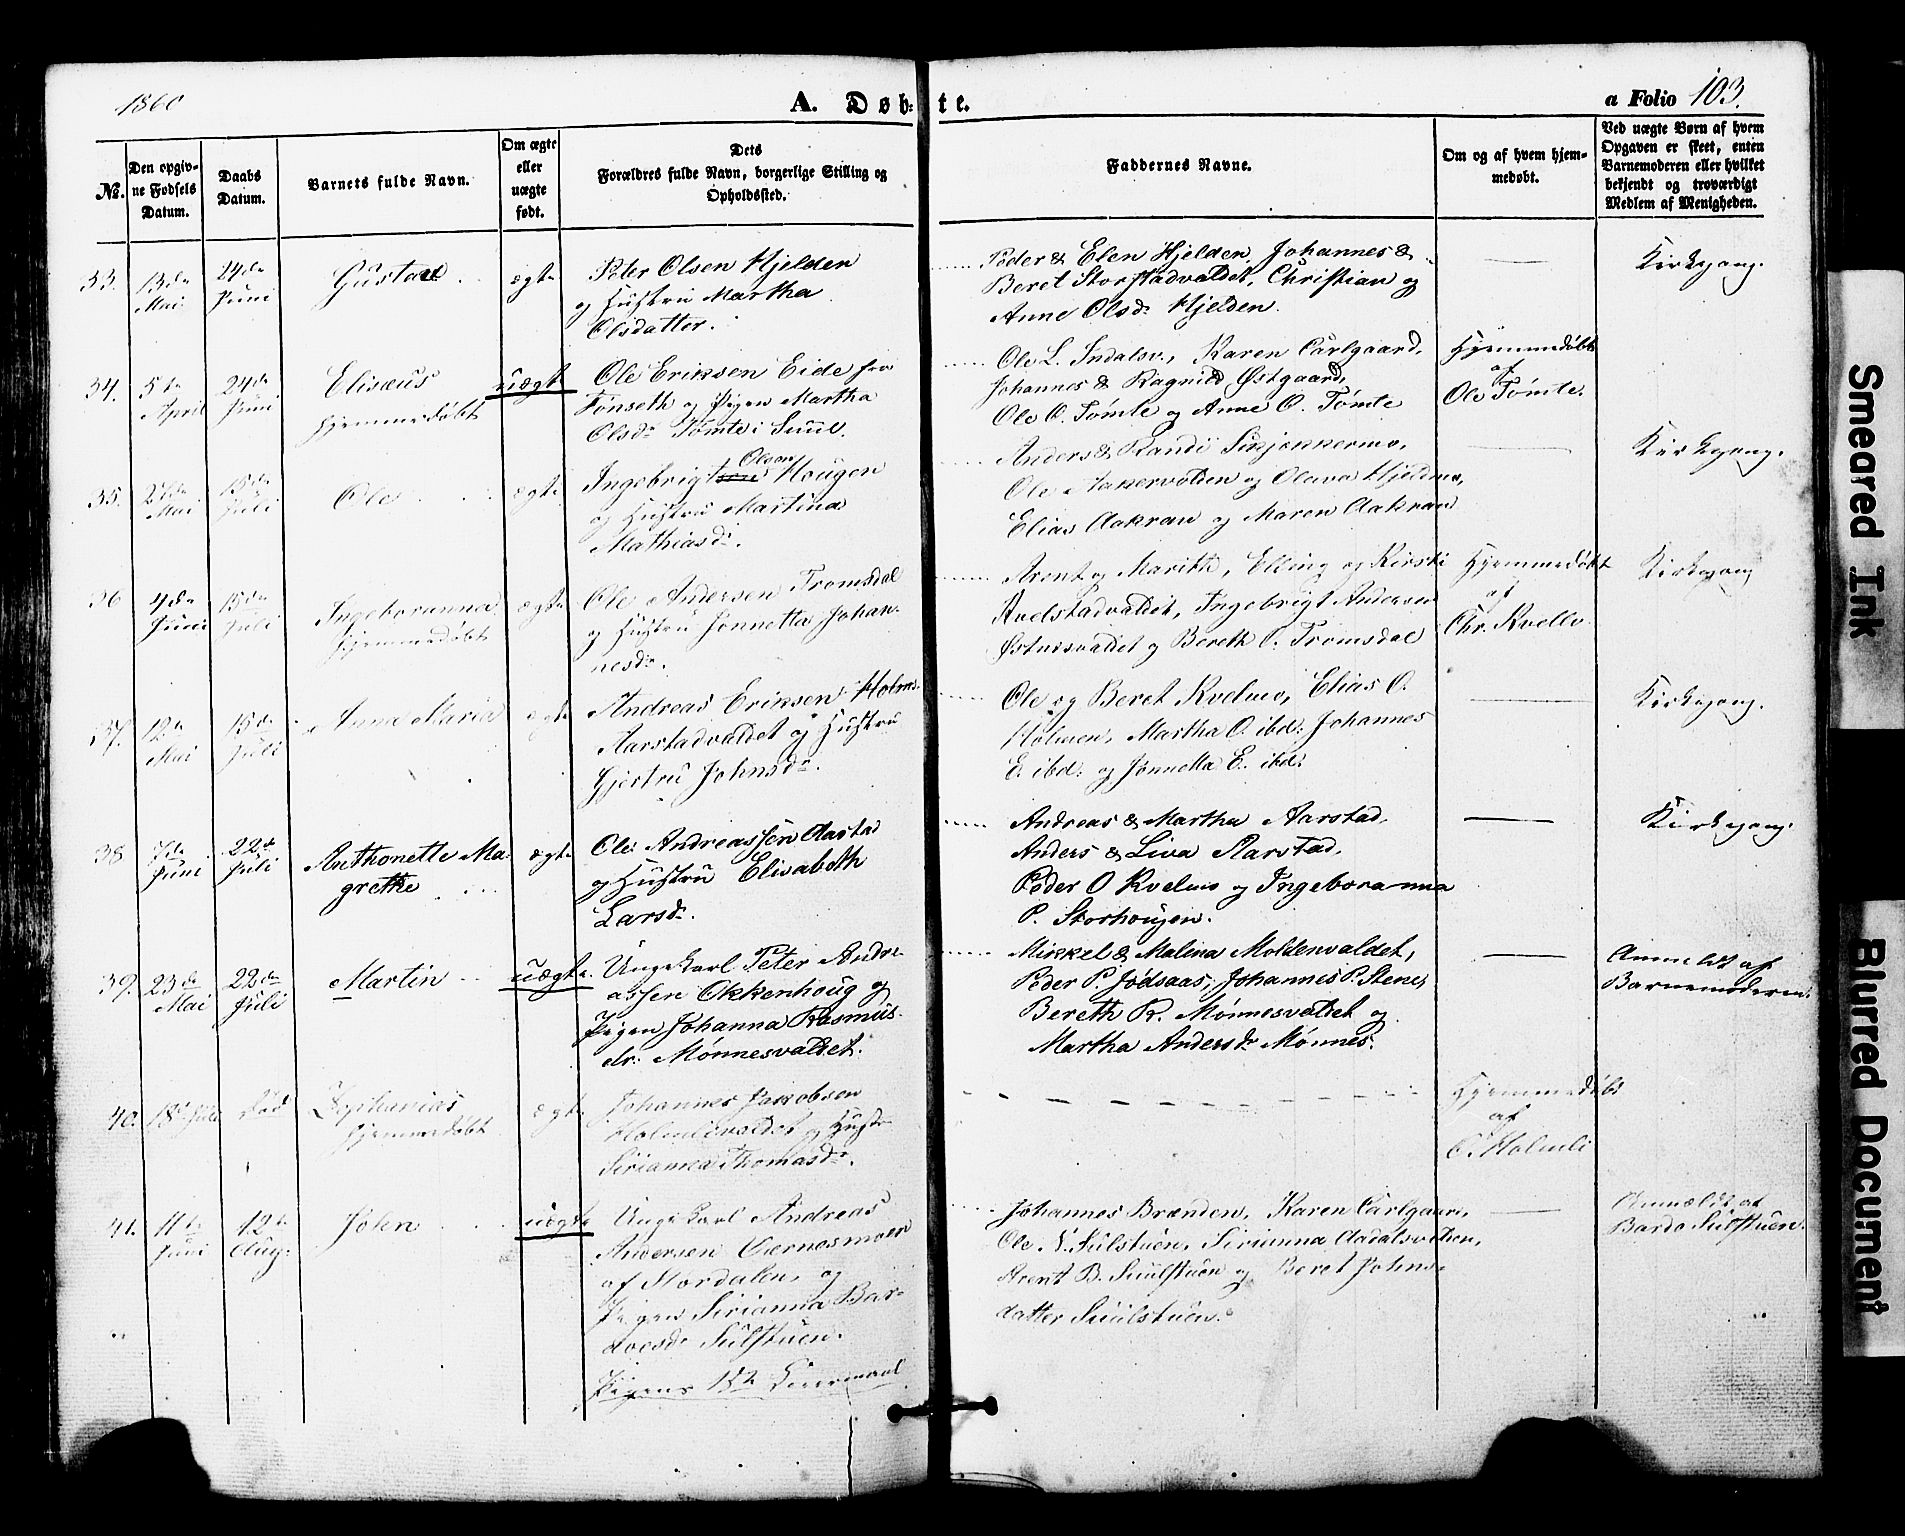 1860
A. Døb-te.
a Folio 103.
No.
Den opgiv-
ne Fødsels
Datum.
Daabs
Datum.
Barnets fulde Navn.
Om ægte
eller
uægte
født.
Dets
Forældres fulde Navn, borgerlige Stilling og
Opholdssted.
Faddernes Navne.
Om og af hvem hjem-
medøbt.
Ved uægte Børn af hvem
Opgaven er skeet, enten
Barnemoderen eller hvilket
bekjendt og troværdigt
Medlem af Menigheden.
33. 13de Mai 24de Juni Gustav ægte
Peter Olsen Hjelden
og Hustru Martha
Olsdatter.
Peder & Elen Hjelden, Johannes &
Beret Storstadvaldet, Christian og
Anne Olsdr Hjelden.
Kirkegang.
34. 5te April 24de Juni Elisæus
hjemmedøbt
uægte
Ole Eriksen Eide fra
Tønseth og Pigen Martha
Olsdr Tømte i Suul.
Ole L. Indalsv., Karen Carlgaard,
Johannes & Ragnild Østgaard,
Ole O. Tømte og Anne O. Tømte
Hjemmedøbt
af
Ole Tømte.
35. Mai 15de Juli Ole ægte
Ingebrigt Olsen Hougen
og Hustru Martina
Mathiasdr.
Anders & Randi Skjækkermo,
Ole Aakervolden og Olava Hjeldmo,
Elias Aakran og Maren Aakran
Kirkegang.
36 4de Juni 15de Juli Ingeboranna
hjemmedøbt
ægte
Ole Andersen Tromsdal
og Hustru Jonnetta Johan-
nesdr.
Arent og Marith, Elling og Kirsti
Kvelstadvaldet, Ingebrigt Andersen
og Bereth O. Tromsdal
Hjemmedøbt
af
Chr. Kvello
Kirkegang
37. 12te Mai 15de Juli Anna Maria ægte
Andreas Eriksen Holms-
Aarstadvaldet og Hustru
Gjertru Johnsdr.
Ole og Beret Kvelmo, Elias O.
Holmen, Martha O. ibd: Johannes
E. ibd: og Jonnetta E. ibd:
Kirkegang.
38 7de Juni 22de Juli Anthonette Ma-
grethe
ægte
Ole Andreassen Aarstad
og Hustru Elisabeth
Larsdr.
Andreas & Martha Aarstad,
Anders & Liva Aarstad,
Peder O Kvelmo og Ingeboranna
P. Storhougen.
Kirkegang.
39. 23de Mai 22de Juli Martin uægte.
Ungekarl Peter Andre-
assen Okkenhoug og
Pigen Johanna Rasmus-
dr: Mønnesvaldet.
Mikkel & Malina Moldenvaldet,
Peder P. Jødsaas, Johannes P. Stene,
Bereth R. Mønnesvaldet og
Martha Andersdr Mønnes.
Anmeldt af
Barnemoderen.
40. 18de Juli død Zephanias
hjemmedøbt
ægte
Johannes Jakobsen
Holmlivaldet og Hustr
Sirianna Thomasdr.
Hjemmedøbt
af
O. Holmli
41. 11te Juni 12te Aug: John uægte
Ungekarl Andreas
Andersen
af Stordalen, og
Pigen Sirianna Bar-
doesdr Sulstuen.
Pigens 1ste Leiermaal
Johannes Brænden, Karen Carlgaard,
Ole N. Sulstuen, Sirianna Aadalsvolden,
Arent B. Suulstuen og Beret Johns-
datter Suulstuen.
Anmeldt af
Bardo Sulstuen.
Smeared Ink
Blurred Document